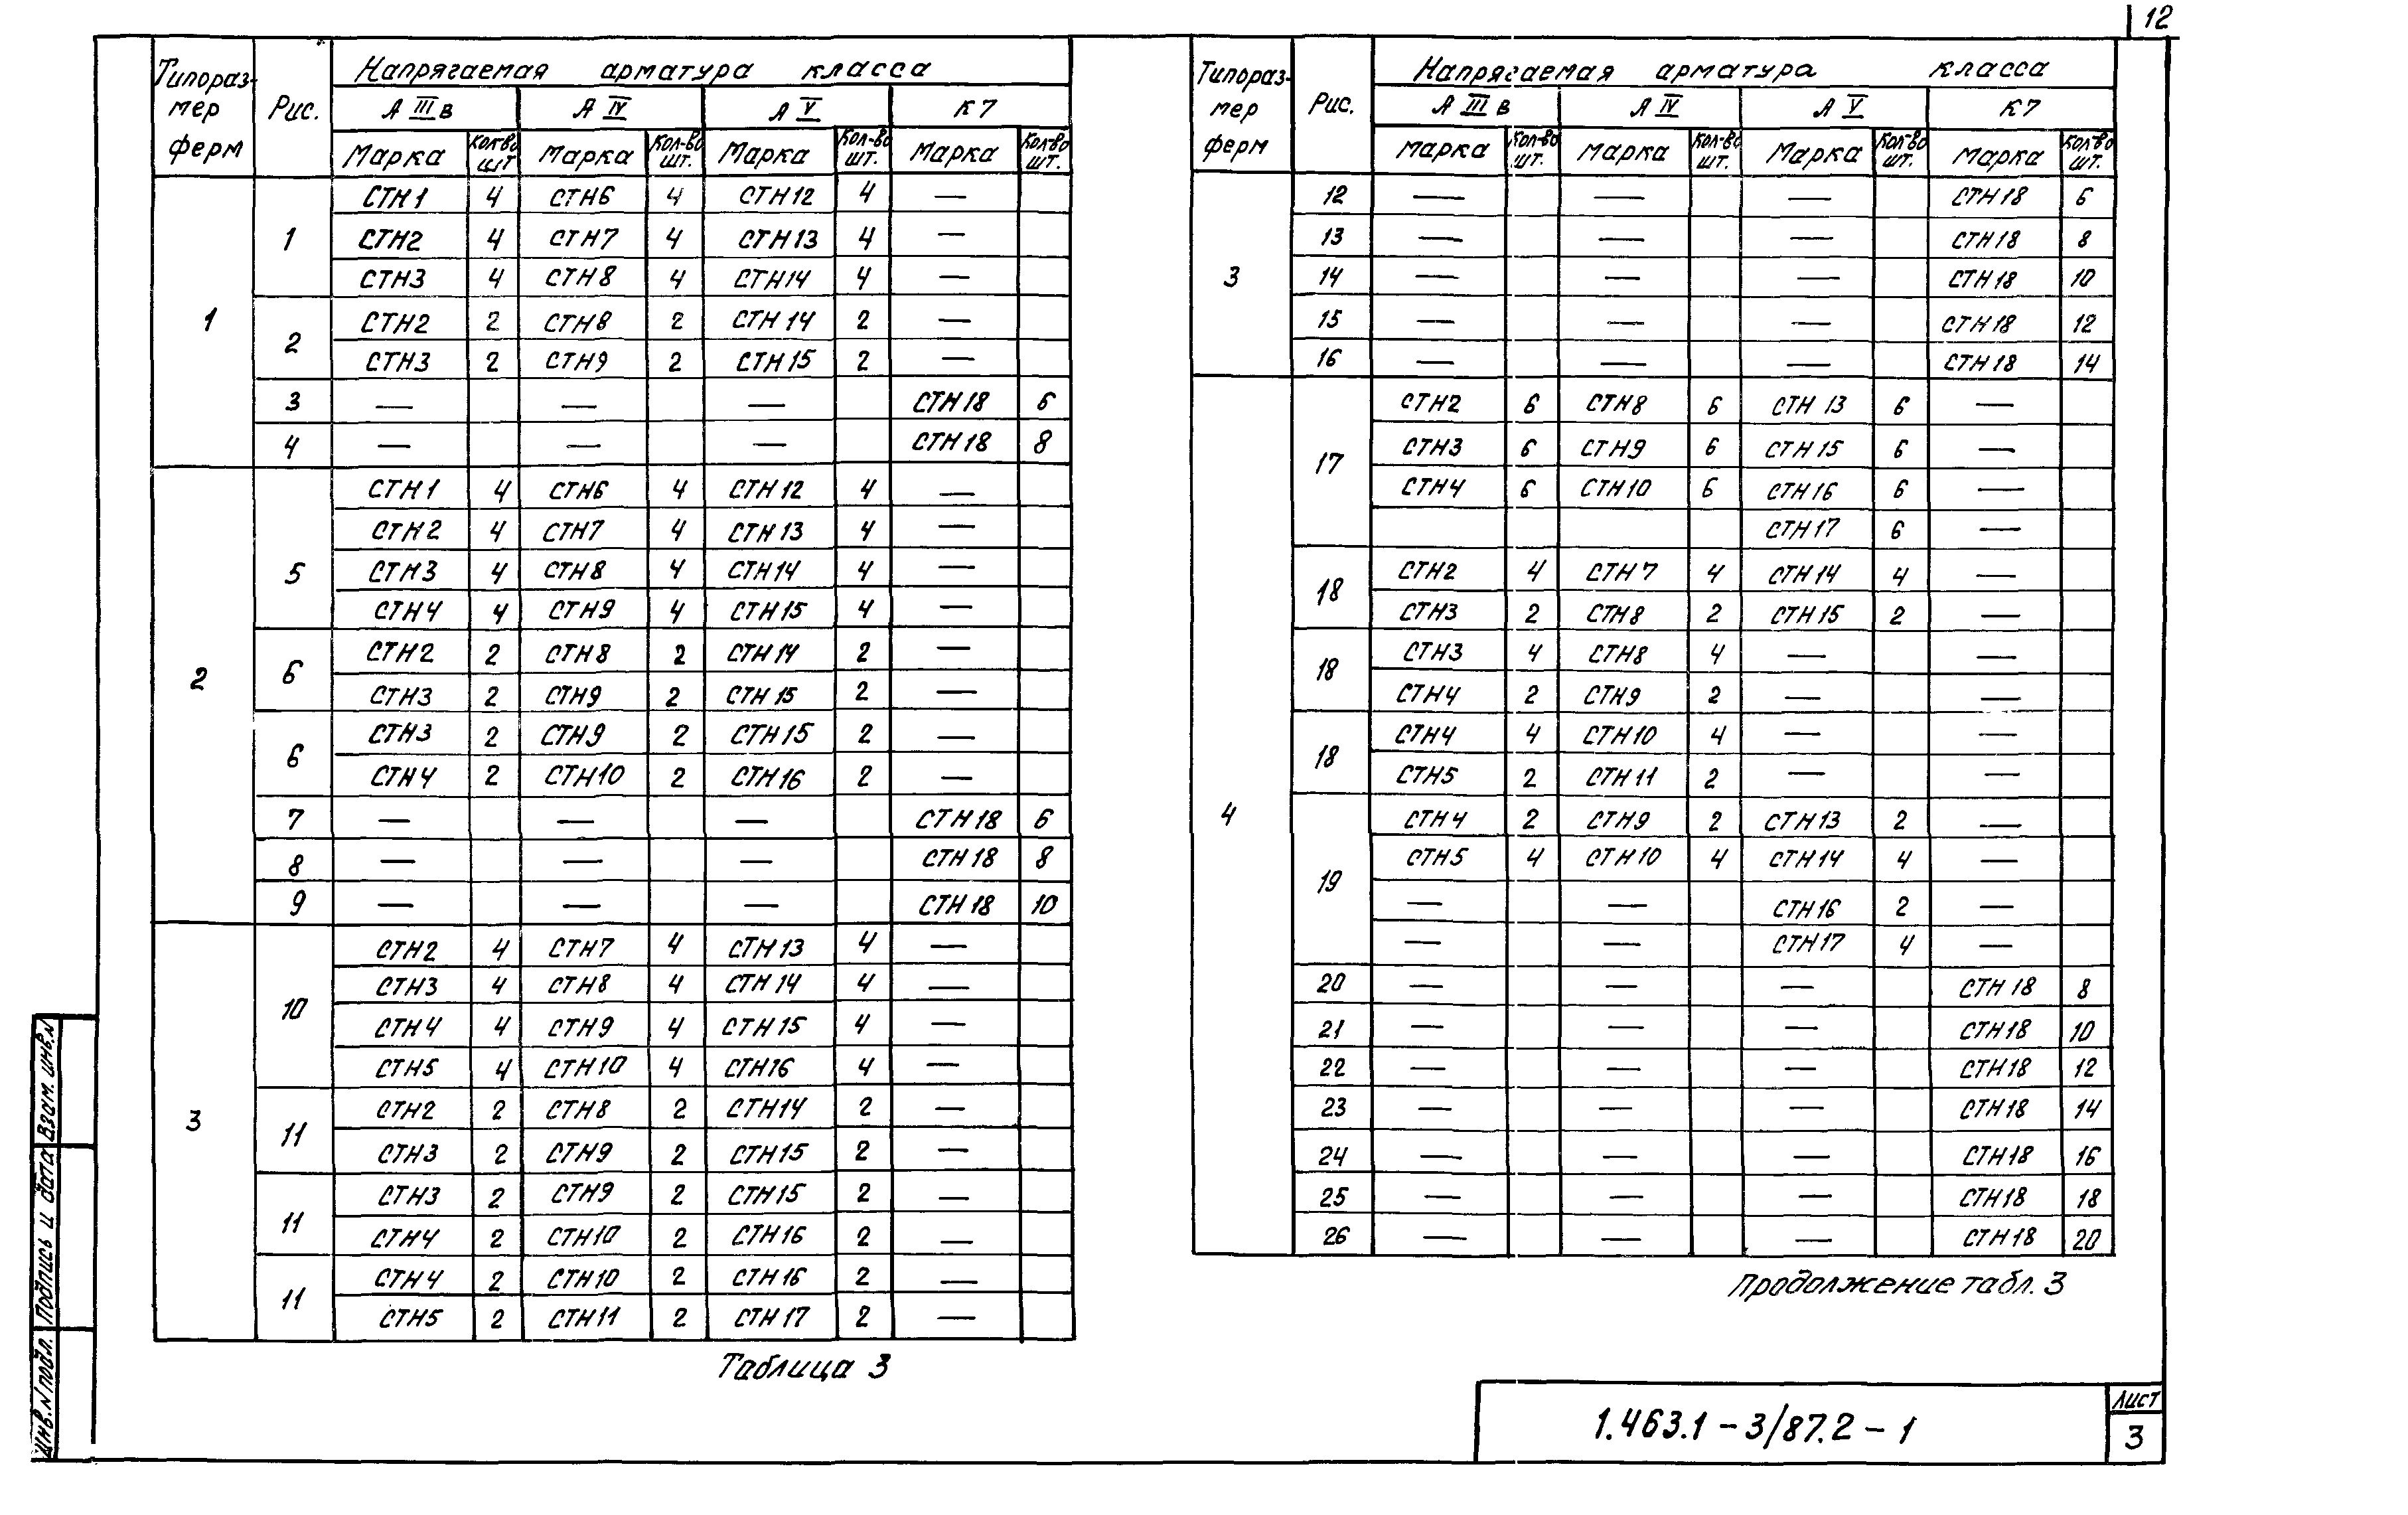 12
Типораз-мер ферм Рис. Напрягаемая арматура класса
А III в А IV А V К7
Марка Кол-во шт Марка Кол-во шт. Марка Кол-во шт. Марка Кол-во шт.
1 1 СТН1 4 СТН6 4 СТН12 4 —
СТН2 4 СТН7 4 СТН13 4 —
СТН3 4 СТН8 4 СТН14 4 —
2 СТН2 2 СТН8 2 СТН14 2 —
СТН3 2 СТН9 2 СТН15 2 —
3 — — — СТН18 6
4 — — — СТН18 8
2 5 СТН1 4 СТН6 4 СТН12 4 —
СТН2 4 СТН7 4 СТН13 4 —
СТН3 4 СТН8 4 СТН14 4 —
СТН4 4 СТН9 4 СТН15 4 —
6 СТН2 2 СТН8 2 СТН14 2 —
СТН3 2 СТН9 2 СТН15 2 —
6 СТН3 2 СТН9 2 СТН15 2 —
СТН4 2 СТН10 2 СТН16 2 —
7 — — — СТН18 6
8 — — — СТН18 8
9 — — — СТН18 10
3 10 СТН2 4 СТН7 4 СТН13 4 —
СТН3 4 СТН8 4 СТН14 4 —
СТН4 4 СТН9 4 СТН15 4 —
СТН5 4 СТН10 4 СТН16 4 —
11 СТН2 2 СТН8 2 СТН14 2 —
СТН3 2 СТН9 2 СТН15 2 —
11 СТН3 2 СТН9 2 СТН15 2 —
СТН4 2 СТН10 2 СТН16 2 —
11 СТН4 2 СТН10 2 СТН16 2 —
СТН5 2 СТН11 2 СТН17 2 —
Таблица 3
Типораз-мер ферм Рис. Напрягаемая арматура класса
А III в А IV А V К7
Марка Кол-во шт. Марка Кол-во шт. Марка Кол-во шт. Марка Кол-во шт.
3 12 — — — СТН18 6
13 — — — СТН18 8
14 — — — СТН18 10
15 — — — СТН18 12
16 — — — СТН18 14
4 17 СТН2 6 СТН8 6 СТН13 6 —
СТН3 6 СТН9 6 СТН15 6 —
СТН4 6 СТН10 6 СТН16 6 —
СТН17 6 —
18 СТН2 4 СТН7 4 СТН14 4 —
СТН3 2 СТН8 2 СТН15 2 —
18 СТН3 4 СТН8 4 — —
СТН4 2 СТН9 2 — —
18 СТН4 4 СТН10 4 — —
СТН5 2 СТН11 2 — —
19 СТН4 2 СТН9 2 СТН13 2 —
СТН5 4 СТН10 4 СТН14 4 —
— — СТН16 2 —
— — СТН17 4 —
20 — — — СТН18 8
21 — — — СТН18 10
22 — — — СТН18 12
23 — — — СТН18 14
24 — — — СТН18 16
25 — — — СТН18 18
26 — — — СТН18 20
Продолжение табл. 3
Взам. инв.N
Подпись и дата
Инв.N подл.
1.463.1-3/87.2-1
Лист
3